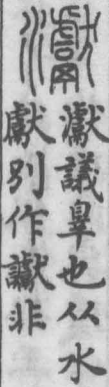 𤅊
𤅊議辠也从水
獻別作讞非